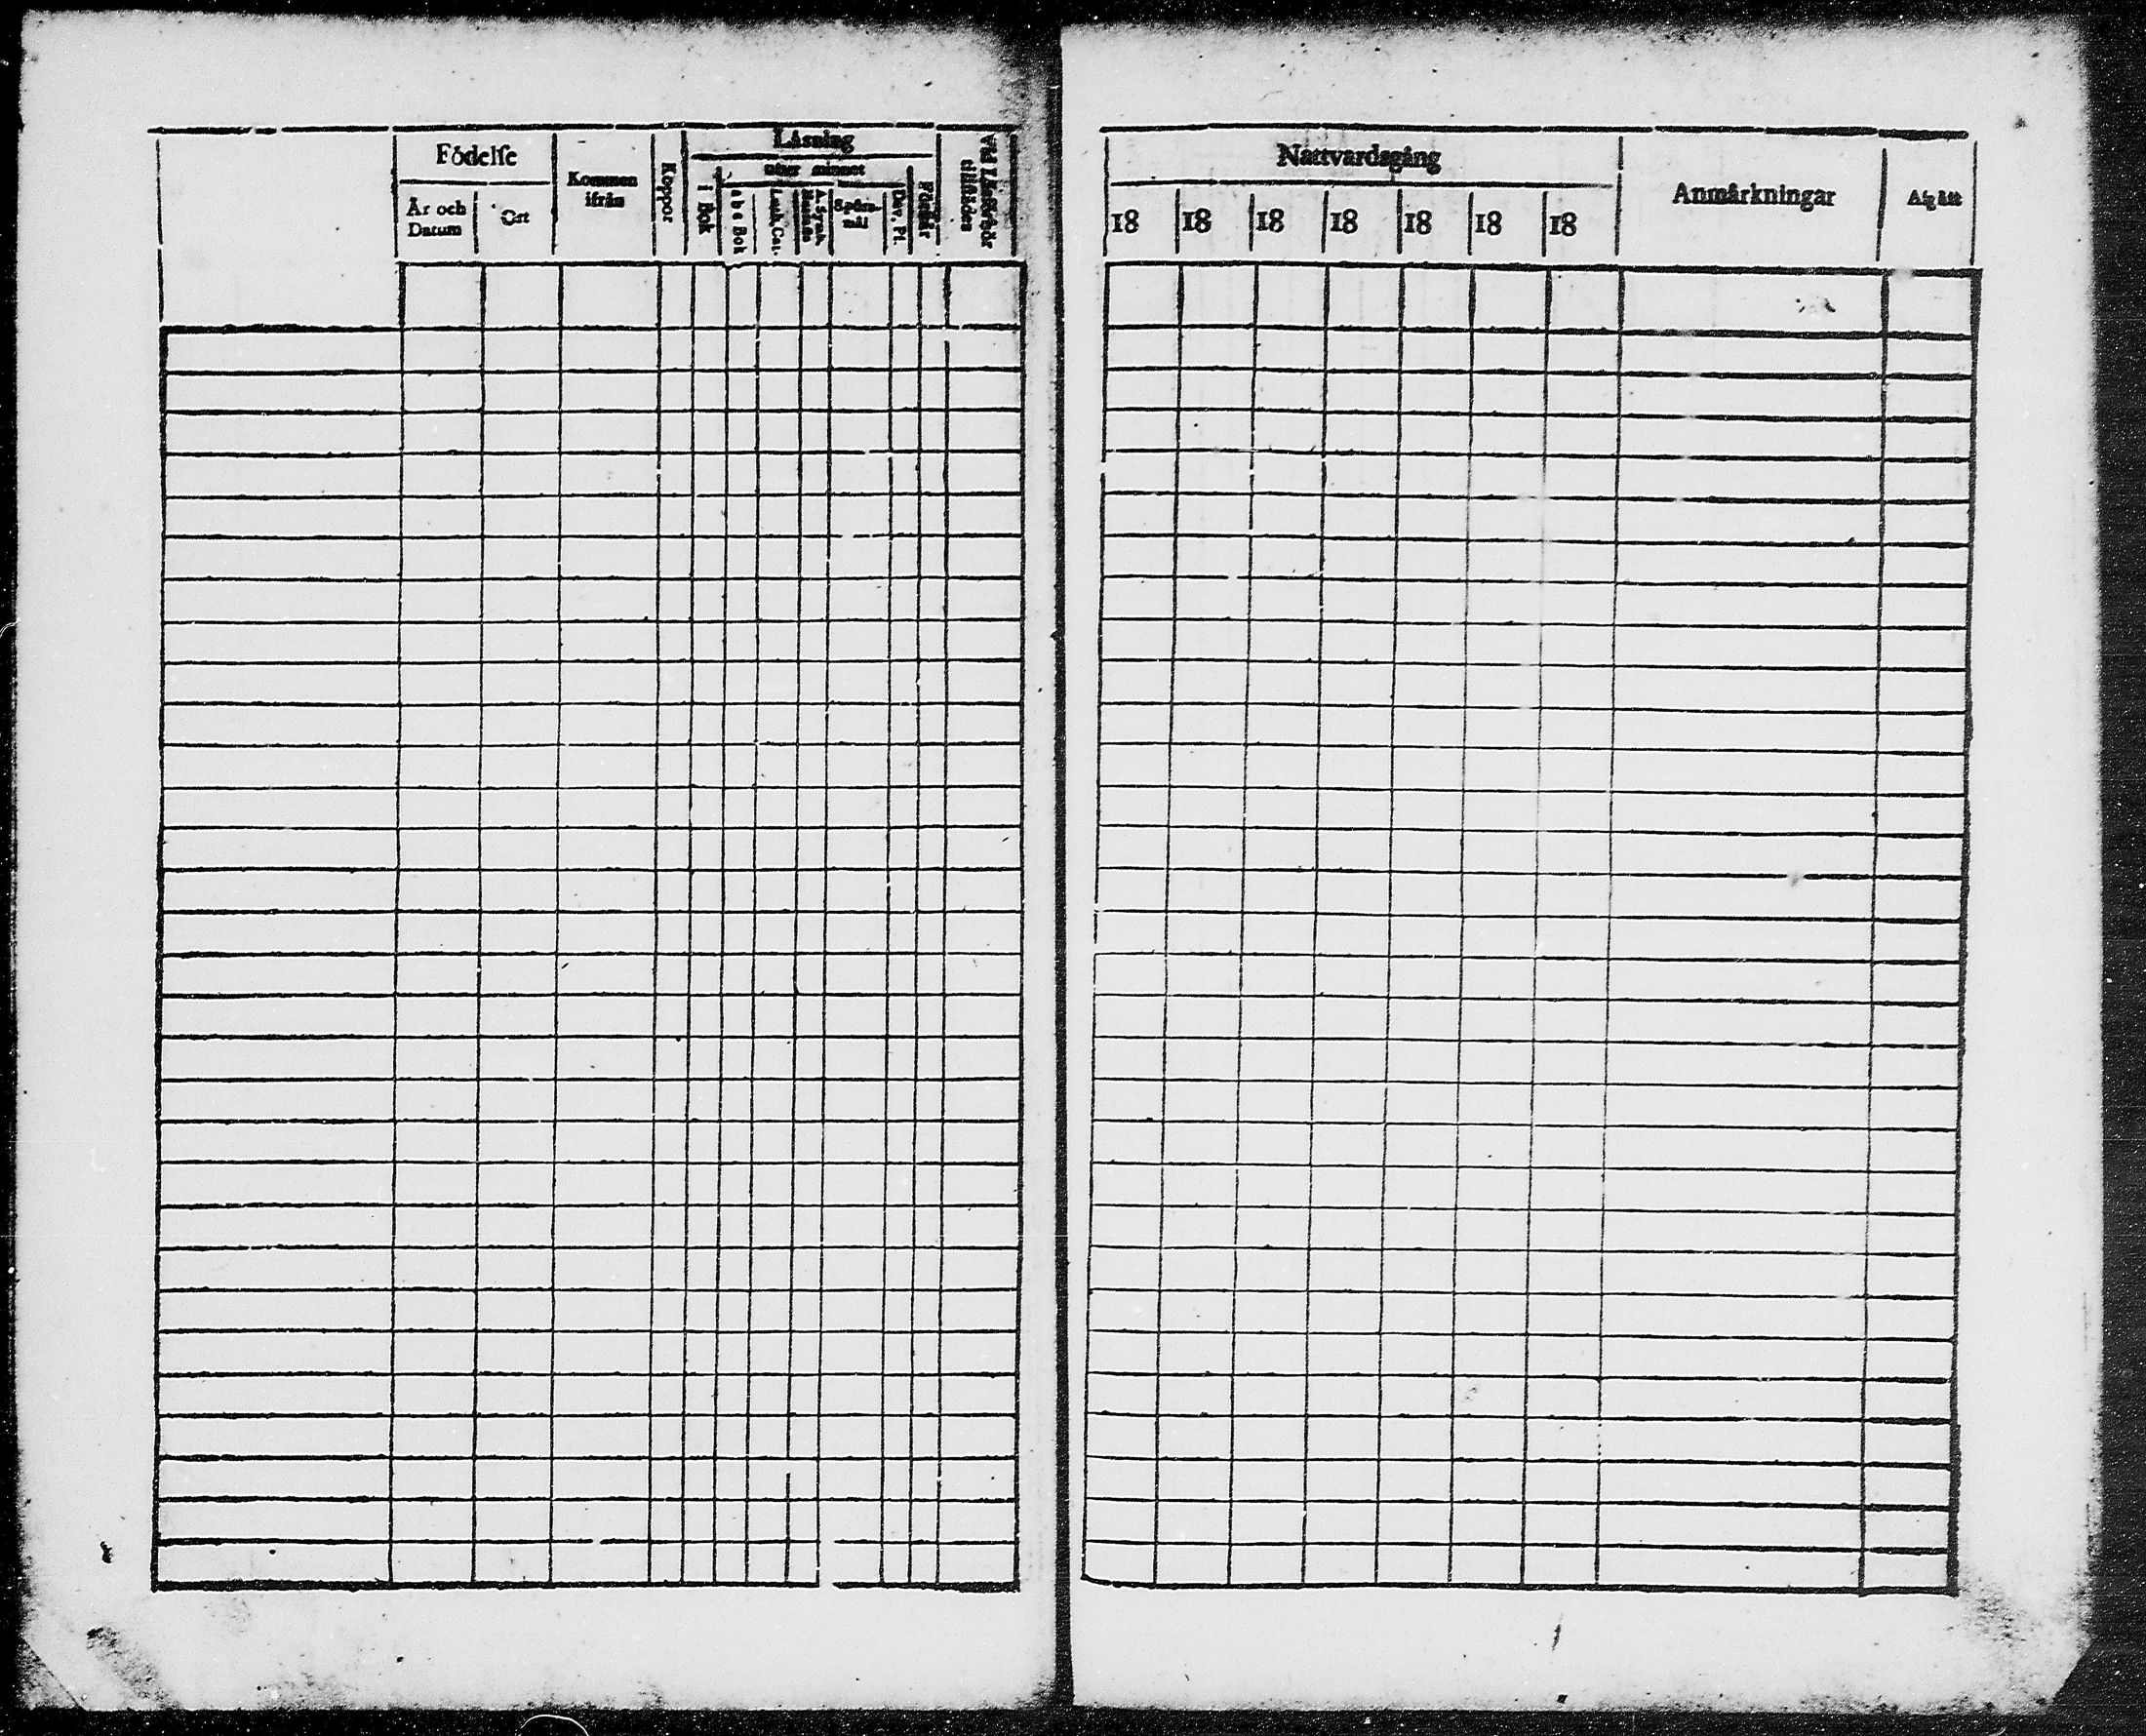 Födelse
År och Datum
Ort
Kommen ifrån
Koppor
Läsning
i Bok
utur minnet
a b c Bok
Luth. Cat.
A. Symb.
Spörs-mål
Dav. Ps.
Förstår
Vid Läsförhör tillstädes
Nattvardsgång
18 18 18 18 18 18 18
Anmärkningar
Afgått